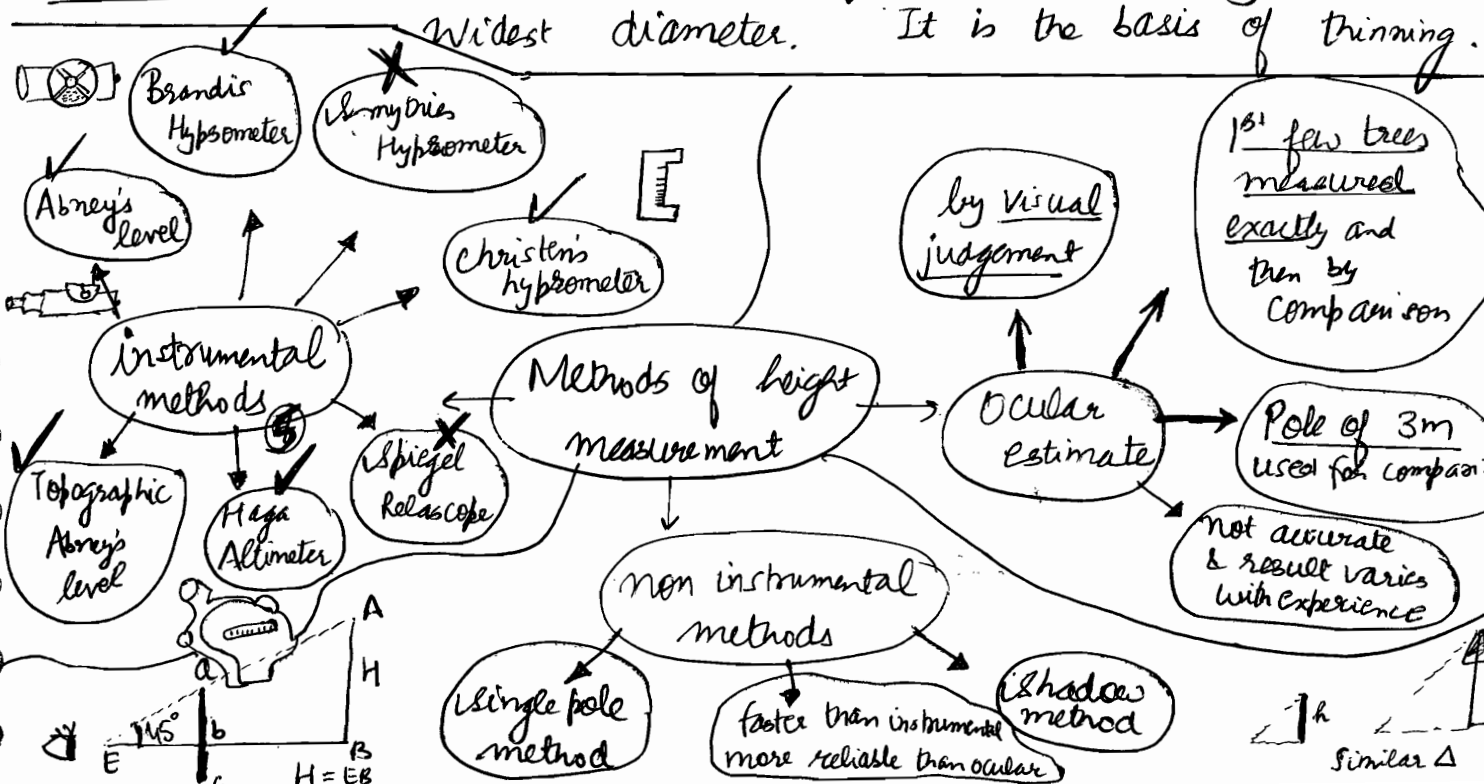 Widest diameter. It is the basis of thinning.
Brandis
Hypsometer
Smythies
Hypsometer
Abney's
level
Christen's
hypsometer
instrumental
methods
Topographic
Abney's
level
Haga
Altimeter
Spiegel
Relascope
Methods of height
measurement
by visual
judgement
1st few trees
measured
exactly and
then by
comparison
Ocular
estimate
Pole of 3m
used for
not accurate
& result varies
with experience
non instrumental
methods
single pole
method
faster than instrumental
more reliable than ocular
shadow
method
A
H
a
45°
b
E
B
H = EB
h
Similar Δ